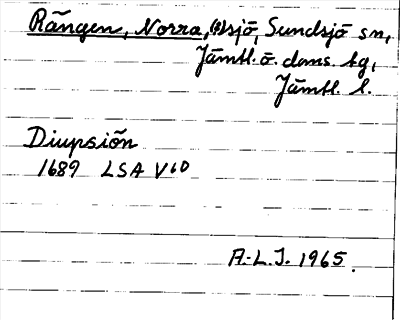 Rängen, Norra, (s)sjö, Sundsjö sn,
Jämtl. ö. doms. tg,
Jämtl. l.
Diupsiön
1689 LSA V10
A.-L.J. 1965.